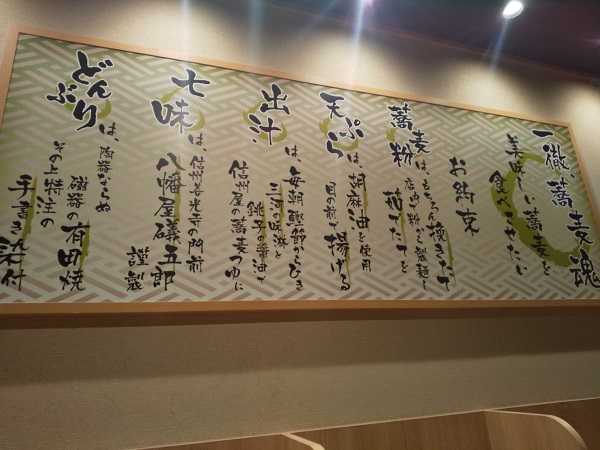 一徹、蕎麦魂
美味しい蕎麦を
食べさせたい
お約束
蕎麦粉は、もちろん挽きたて
店内で粉から製麺し
茹でたてを
天ぷらは、胡麻油を使用
目の前で揚げる
出汁は、毎朝鰹節からひき
三河の味淋と
銚子の醤油で
信州屋の蕎麦つゆに
七味は、信州善光寺の門前
八幡屋礒五郎
謹製
どんぶりは、陶器ならぬ
磁器の有田焼
その上特注の
手書き染付